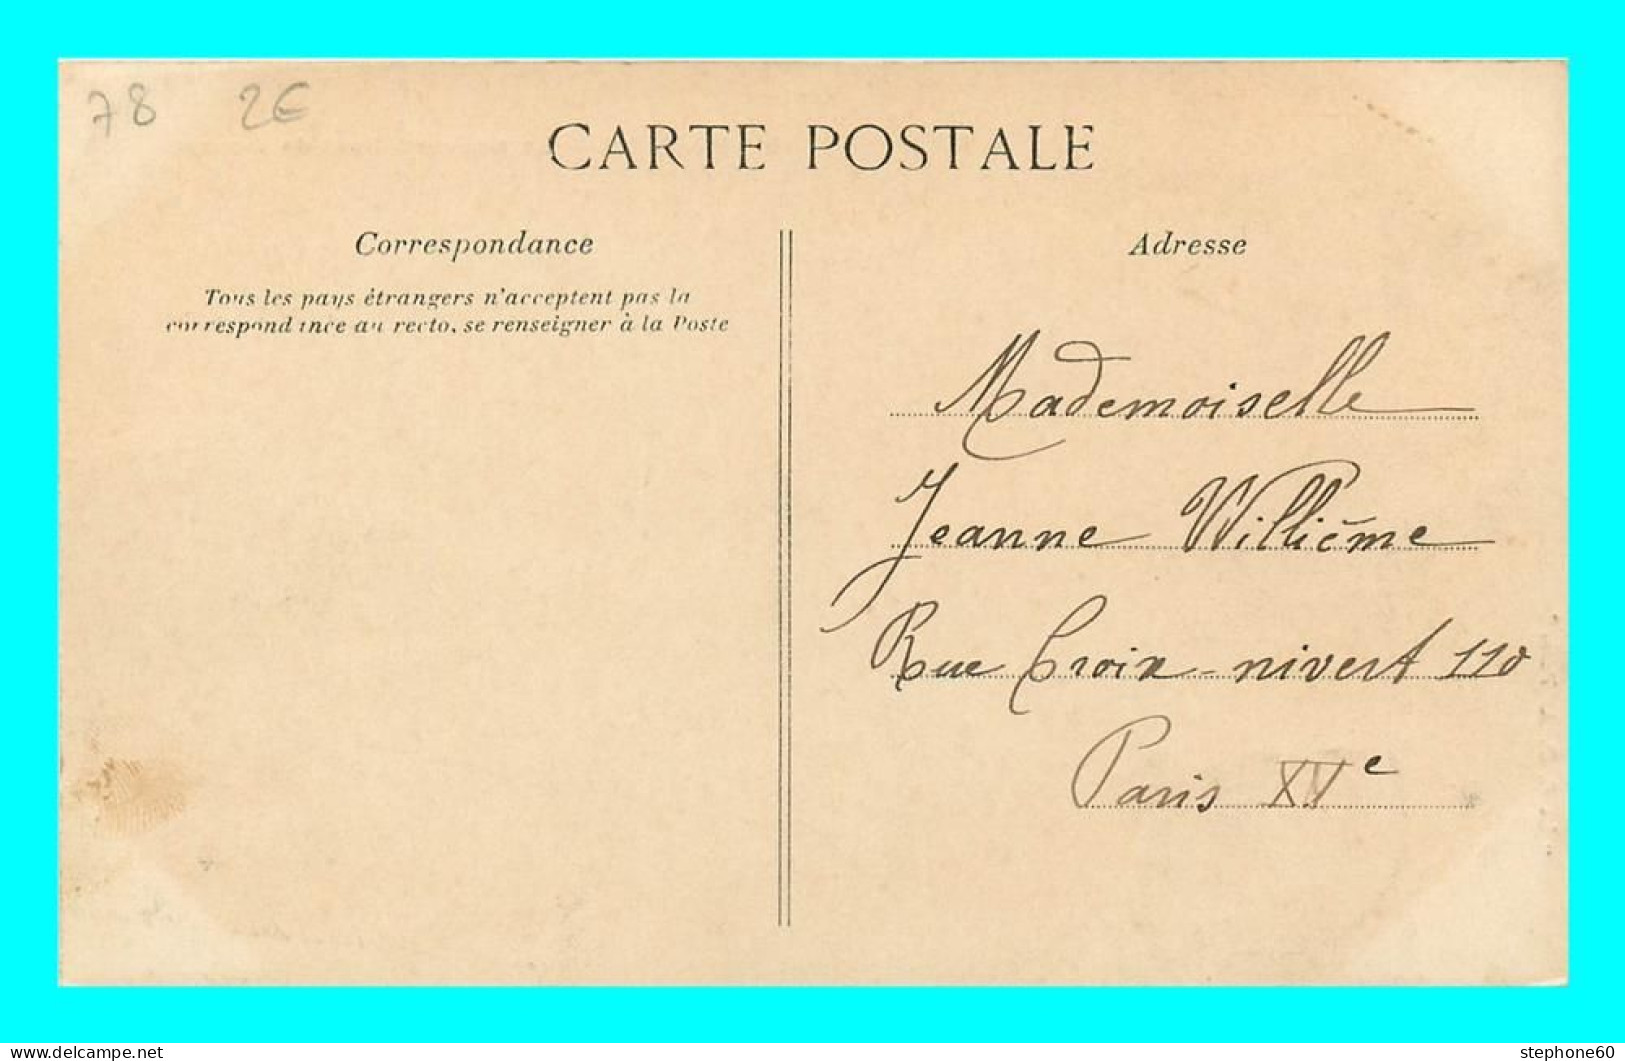 78 2€
CARTE POSTALE
Correspondance
Tous les pays étrangers n'acceptent pas la
correspondance au recto, se renseigner à la Poste
Adresse
Mademoiselle
Jeanne Willième
Rue Croix-nivert 110
Paris XVe
stephone60